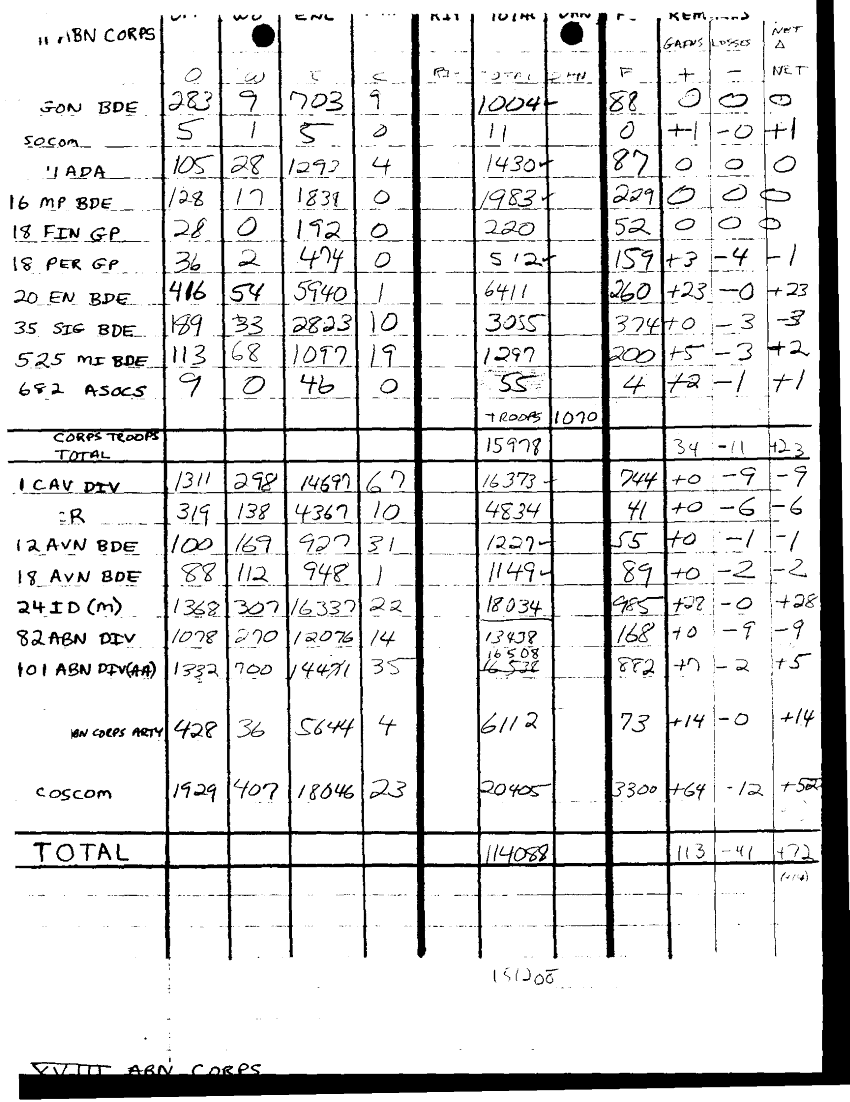 ABN CORPS TOTAL
GAINS LOSSES NET Δ
O W E C TOTAL F + - NET
BDE 283 9 703 9 1004 88 0 0 0
SOCOM 5 1 5 0 11 0 +1 -0 +1
ADA 105 28 1293 4 1430 87 0 0 0
16 MP BDE 128 17 1838 0 1983 229 0 0 0
18 FIN GP 28 0 192 0 220 52 0 0 0
18 PER GP 36 2 474 0 512 159 +3 -4 -1
20 EN BDE 416 54 5940 1 6411 260 +23 -0 +23
35 SIG BDE 189 33 2823 10 3055 374 +0 -3 -3
525 MI BDE 113 68 1097 19 1297 200 +5 -3 +2
682 ASOCS 9 0 46 0 55 4 +2 -1 +1
TROOPS 1070
CORPS TROOPS
TOTAL 15978 34 -11 +23
1 CAV DIV 1311 298 14697 67 16373 744 +0 -9 -9
CR 319 138 4367 10 4834 41 +0 -6 -6
12 AVN BDE 100 169 927 31 1227 55 +0 -1 -1
18 AVN BDE 88 112 948 1 1149 89 +0 -2 -2
24 ID (M) 1368 307 16337 22 18034 985 +28 -0 +28
82 ABN DIV 1078 270 12076 14 13438 168 +0 -9 -9
16508
101 ABN DIV(AA) 1332 700 14471 35 16538 882 +7 -2 +5
ABN CORPS ARTY 428 36 5644 4 6112 73 +14 -0 +14
COSCOM 1929 407 18046 23 20405 3300 +64 -12 +52
TOTAL 114088 113 -41 +72
151200
XVIII ABN CORPS